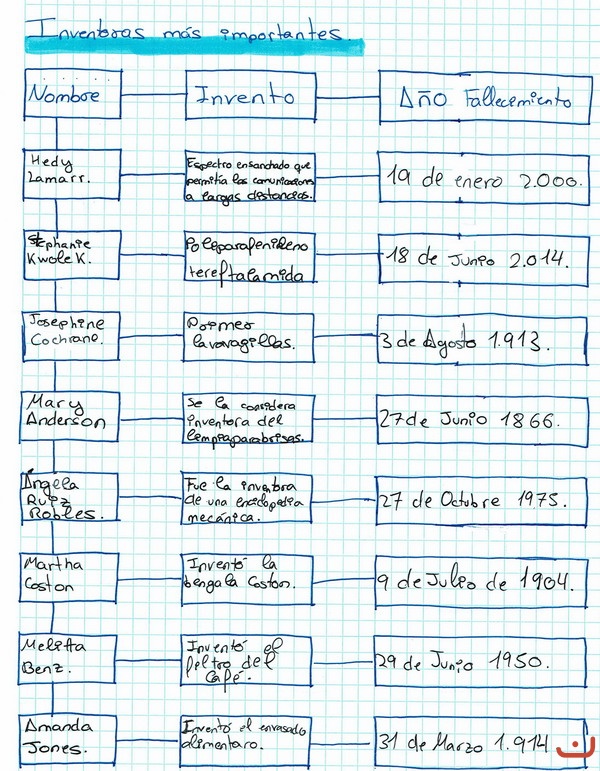 Inventoras más importantes.
Nombre
Invento
Año Fallecimiento
Hedy
Lamarr.
Espectro ensanchado que
permitía las comunicaciones
a largas distancias.
19 de enero 2.000.
Stephanie
Kwolek.
Poliparafenileno
tereftalamida
18 de Junio 2.014.
Josephine
Cochrane.
Primer
lavavagillas.
3 de Agosto 1.913.
Mary
Anderson
Se la considera
inventora del
limpiaparabrisas.
27 de Junio 1866.
Ángela
Ruiz
Robles.
Fue la inventora
de una enciclopedia
mecánica.
27 de Octubre 1975.
Martha
Coston
Inventó la
bengala Coston.
9 de Julio de 1904.
Melitta
Benz.
Inventó el
filtro del
Café.
29 de Junio 1950.
Amanda
Jones.
Inventó el envasado
alimentaro.
31 de Marzo 1.914